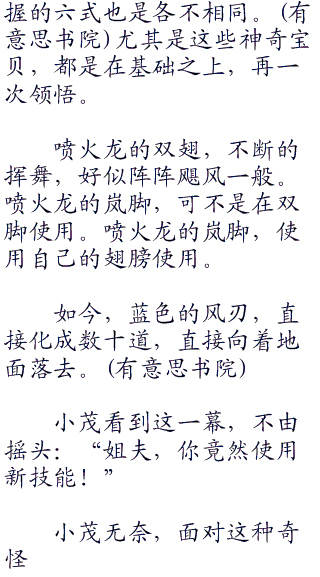 握的六式也是各不相同。(有
意思书院)尤其是这些神奇宝
贝，都是在基础之上，再一
次领悟。
喷火龙的双翅，不断的
挥舞，好似阵阵飓风一般。
喷火龙的岚脚，可不是在双
脚使用。喷火龙的岚脚，使
用自己的翅膀使用。
如今，蓝色的风刃，直
接化成数十道，直接向着地
面落去。(有意思书院)
小茂看到这一幕，不由
摇头：“姐夫，你竟然使用
新技能！”
小茂无奈，面对这种奇
怪